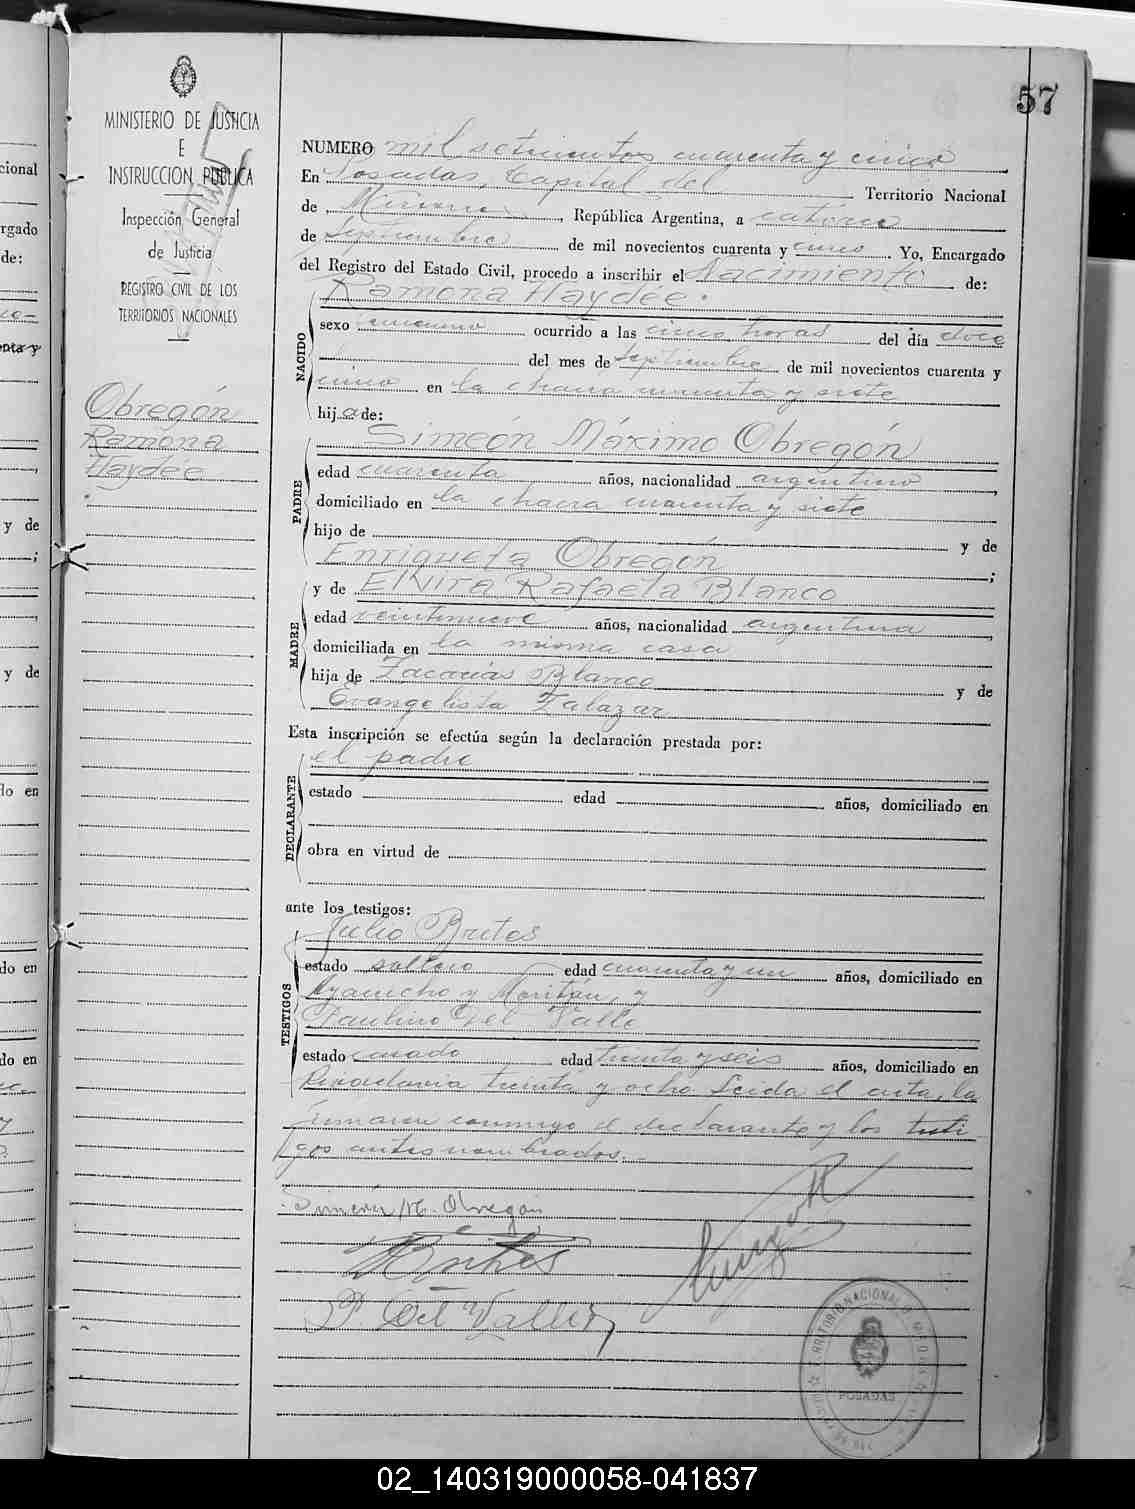 57
MINISTERIO DE JUSTICIA
E
INSTRUCCION PUBLICA
Inspección General
de Justicia
REGISTRO CIVIL DE LOS
TERRITORIOS NACIONALES
Obregón
Ramona
Haydée
NUMERO mil setecientos cuarenta y cinco
En Posadas, Capital del Territorio Nacional
de Misiones, República Argentina, a catorce
de septiembre de mil novecientos cuarenta y cinco. Yo, Encargado
del Registro del Estado Civil, procedo a inscribir el Nacimiento de:
Ramona Haydée.
NACIDO
sexo femenino ocurrido a las cinco horas del día doce
del mes de septiembre de mil novecientos cuarenta y
cinco en la chacra cuarenta y siete
hija de:
Simeón Máximo Obregón
PADRE
edad cuarenta años, nacionalidad argentino,
domiciliado en la chacra cuarenta y siete
hijo de y de
Enriqueta Obregón;
y de Elvira Rafaela Blanco
MADRE
edad veintinueve años, nacionalidad argentina,
domiciliada en la misma casa
hija de Zacarías Blanco y de
Evangelista Zalazar
Esta inscripción se efectúa según la declaración prestada por:
el padre
DECLARANTE
estado edad años, domiciliado en
obra en virtud de
ante los testigos:
Julio Brites
TESTIGOS
estado soltero edad cuarenta y un años, domiciliado en
Ayacucho y Moritán, y
Paulino Del Valle
estado casado edad treinta y seis años, domiciliado en
Rivadavia treinta y ocho Leida el acta, la
firmaron conmigo el declarante y los testi-
gos antes nombrados.-
Simeón M. Obregón
JBrites
P. Del Valle
TERRITORIO NACIONAL DE MISIONES
POSADAS
cional
rgado
de:
y de
y de
do en
do en
do en
02_140319000058-041837